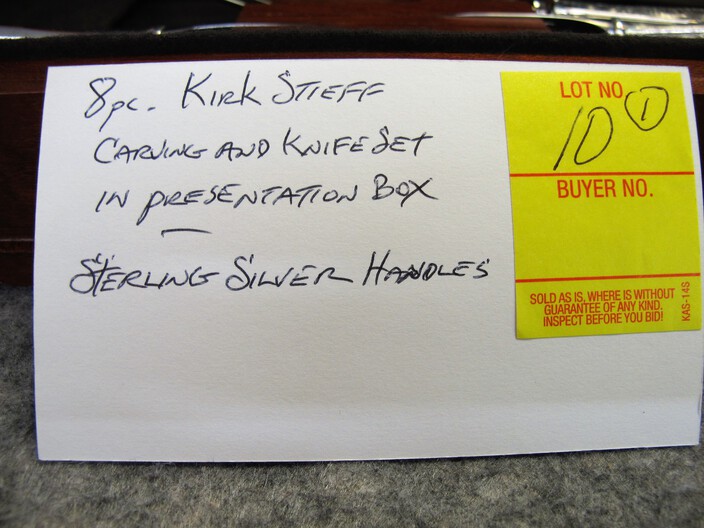 8pc. Kirk Stieff
Carving and Knife Set
in Presentation Box
Sterling Silver Handles
LOT NO.
10 1
BUYER NO.
SOLD AS IS, WHERE IS WITHOUT
GUARANTEE OF ANY KIND.
INSPECT BEFORE YOU BID!
KAS-14S